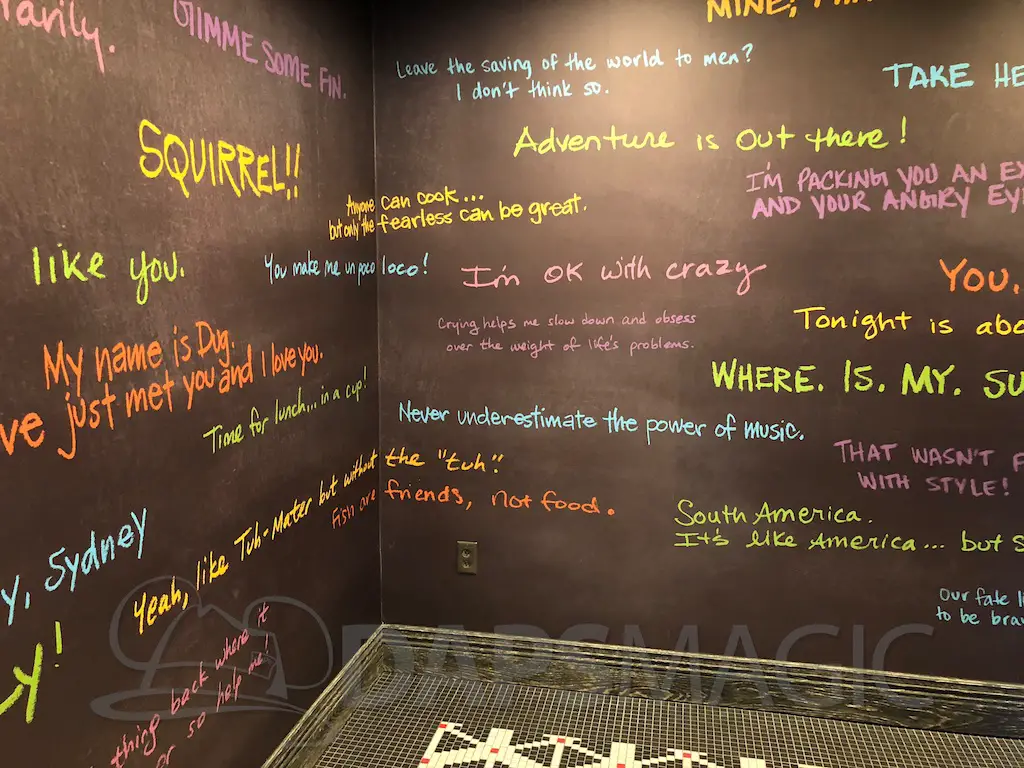 arily.
GIMME SOME FIN.
SQUIRREL!!
like you.
My name is Dug.
ve just met you and I love you.
Time for lunch... in a cup!
y, Sydney
y!
thing back where it
or so help me!
MINE,
Leave the saving of the world to men?
I don't think so.
TAKE HE
Adventure is out there!
I'M PACKING YOU AN EX
AND YOUR ANGRY EY
Anyone can cook...
but only the fearless can be great.
You make me un poco loco!
I'm OK with crazy
YOU.
Crying helps me slow down and obsess
over the weight of life's problems.
Tonight is abo
WHERE. IS. MY. SU
Never underestimate the power of music.
THAT WASN'T F
WITH STYLE!
Yeah, like Tuh-Mater but without the "tuh".
Fish are friends, not food.
South America.
It's like America... but S
Our fate li
to be brav
DAPSMAGIC